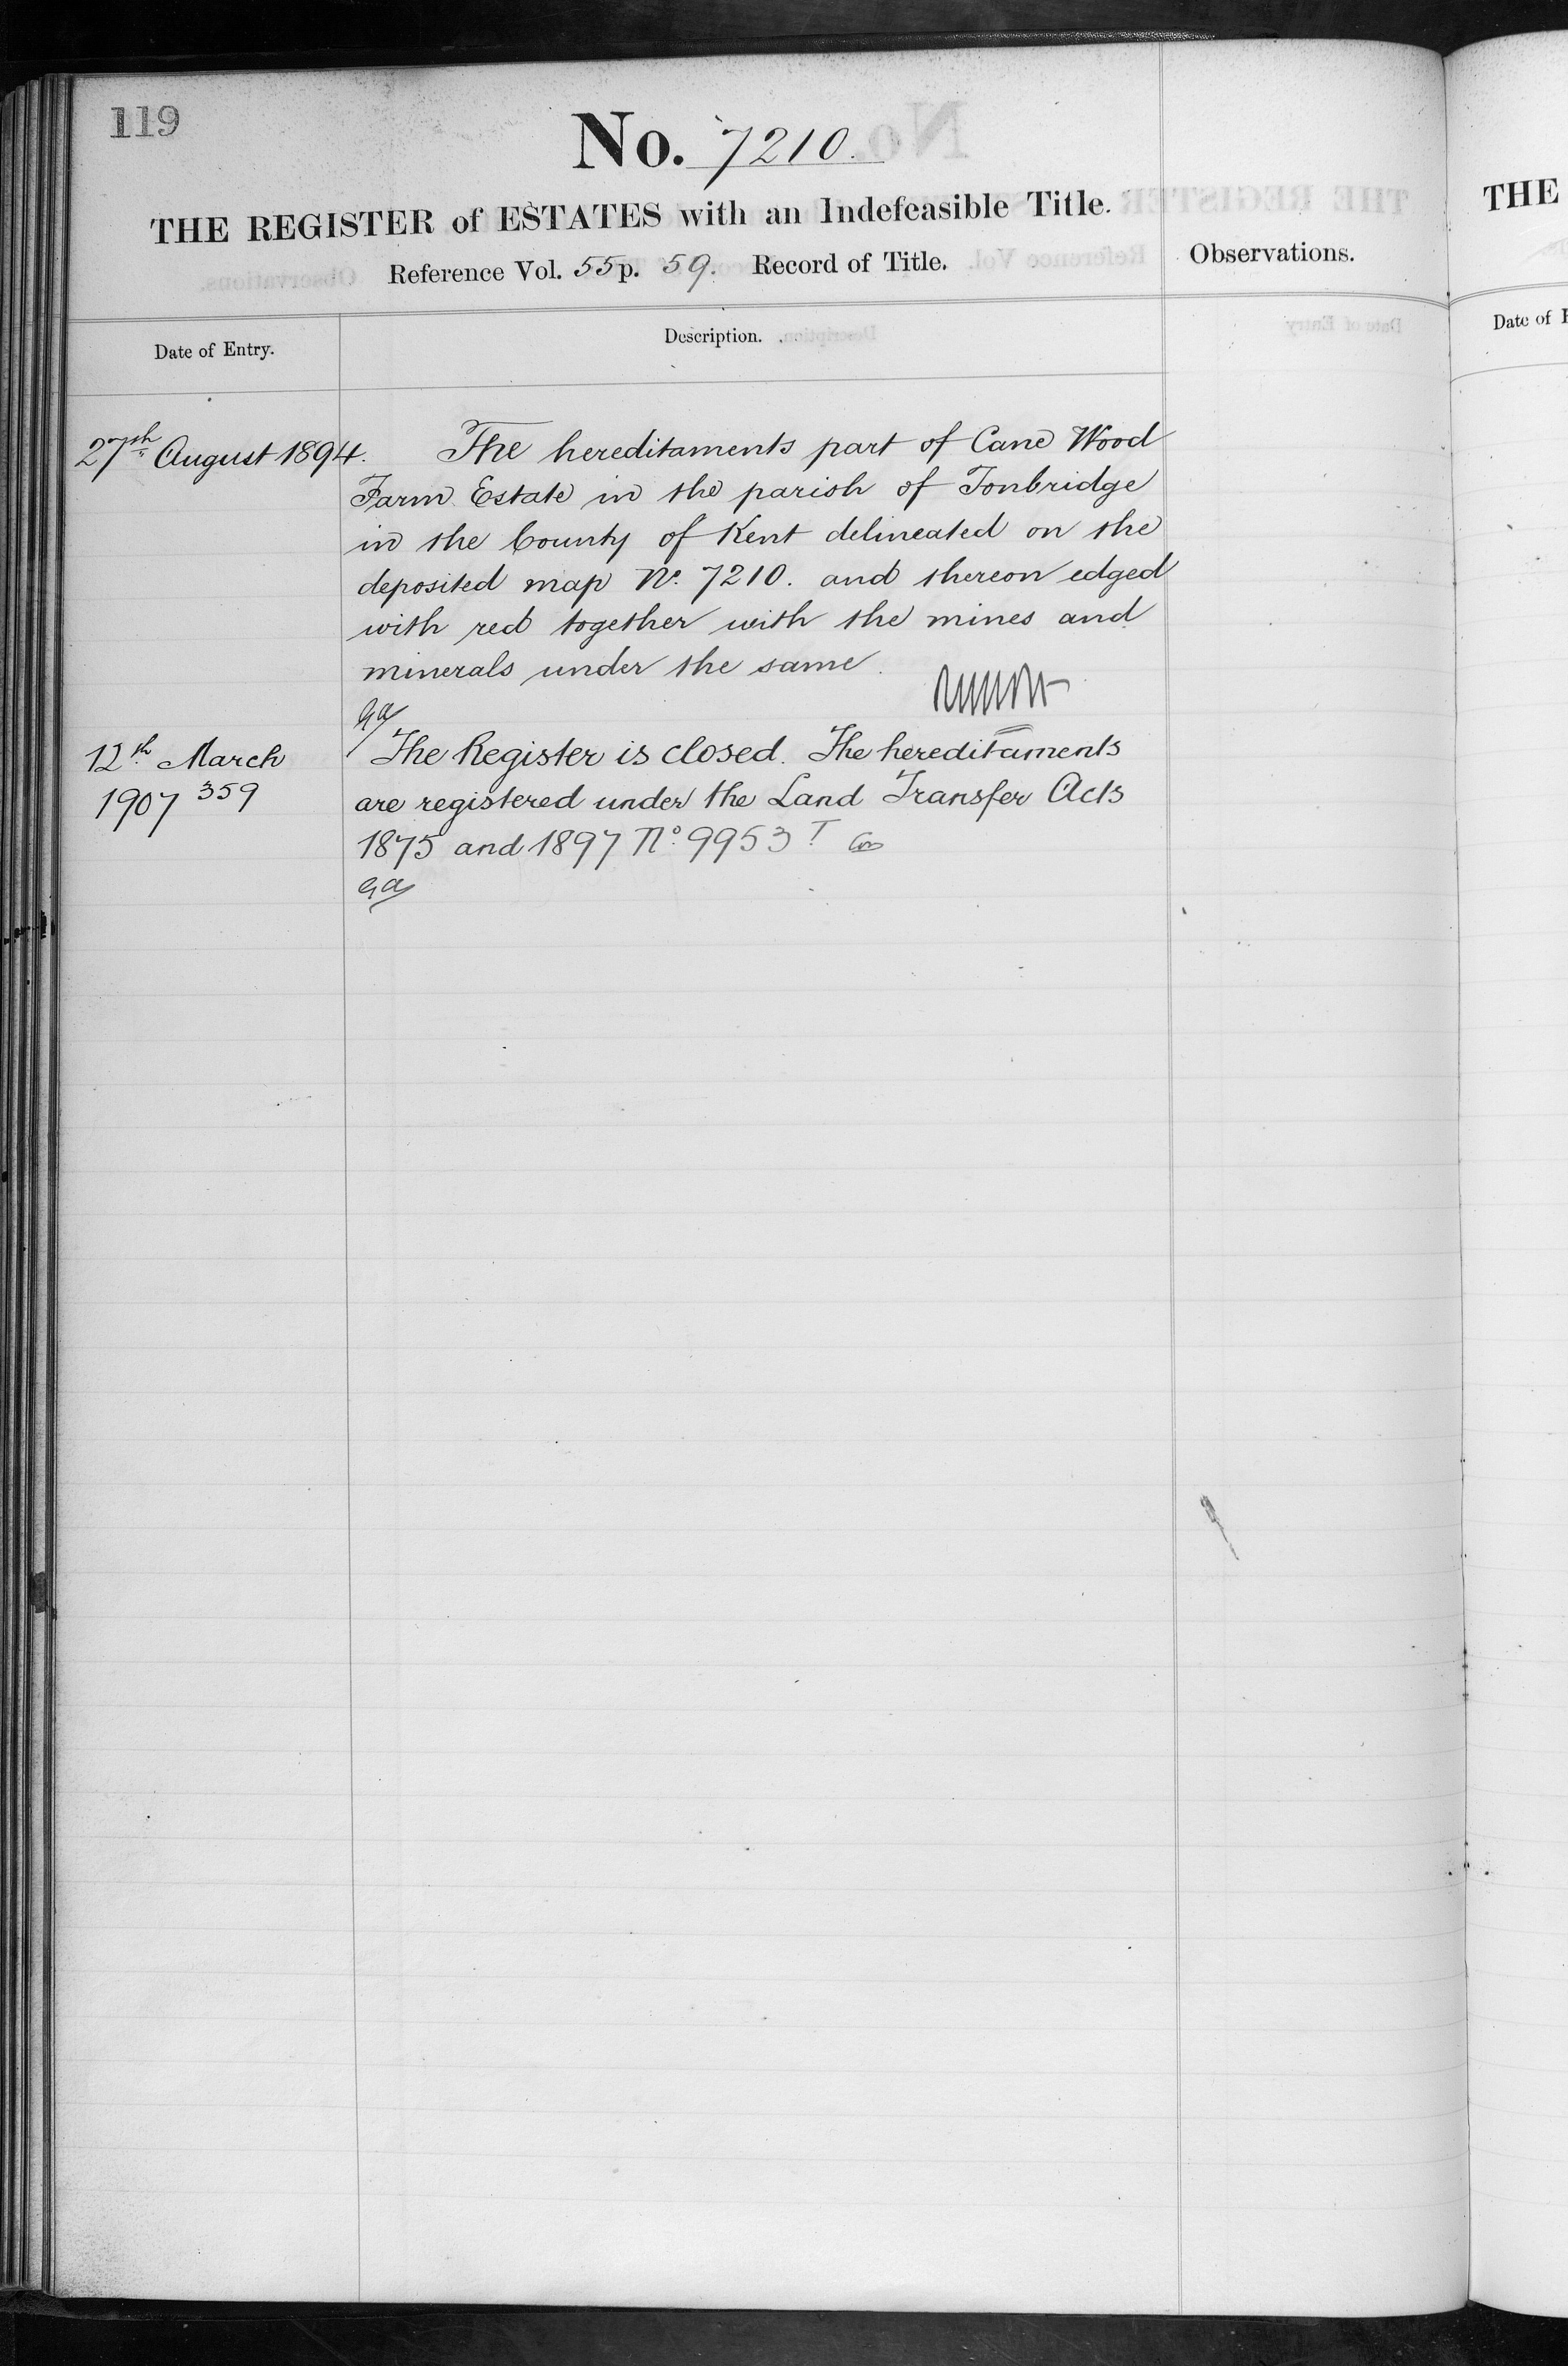 119
No. 7210.
THE REGISTER of ESTATES with an Indefeasible Title.
Reference Vol. 55 p. 59. Record of Title.
Observations.
Date of Entry.
Description.
27th August 1894.
The hereditaments part of Cane Wood
Farm Estate in the parish of Tonbridge
in the County of Kent delineated on the
deposited map No. 7210. and thereon edged
with red together with the mines and
minerals under the same.
12th March
1907 359
The Register is closed. The hereditaments
are registered under the Land Transfer Acts
1875 and 1897 No. 9953 T
THE
Date of